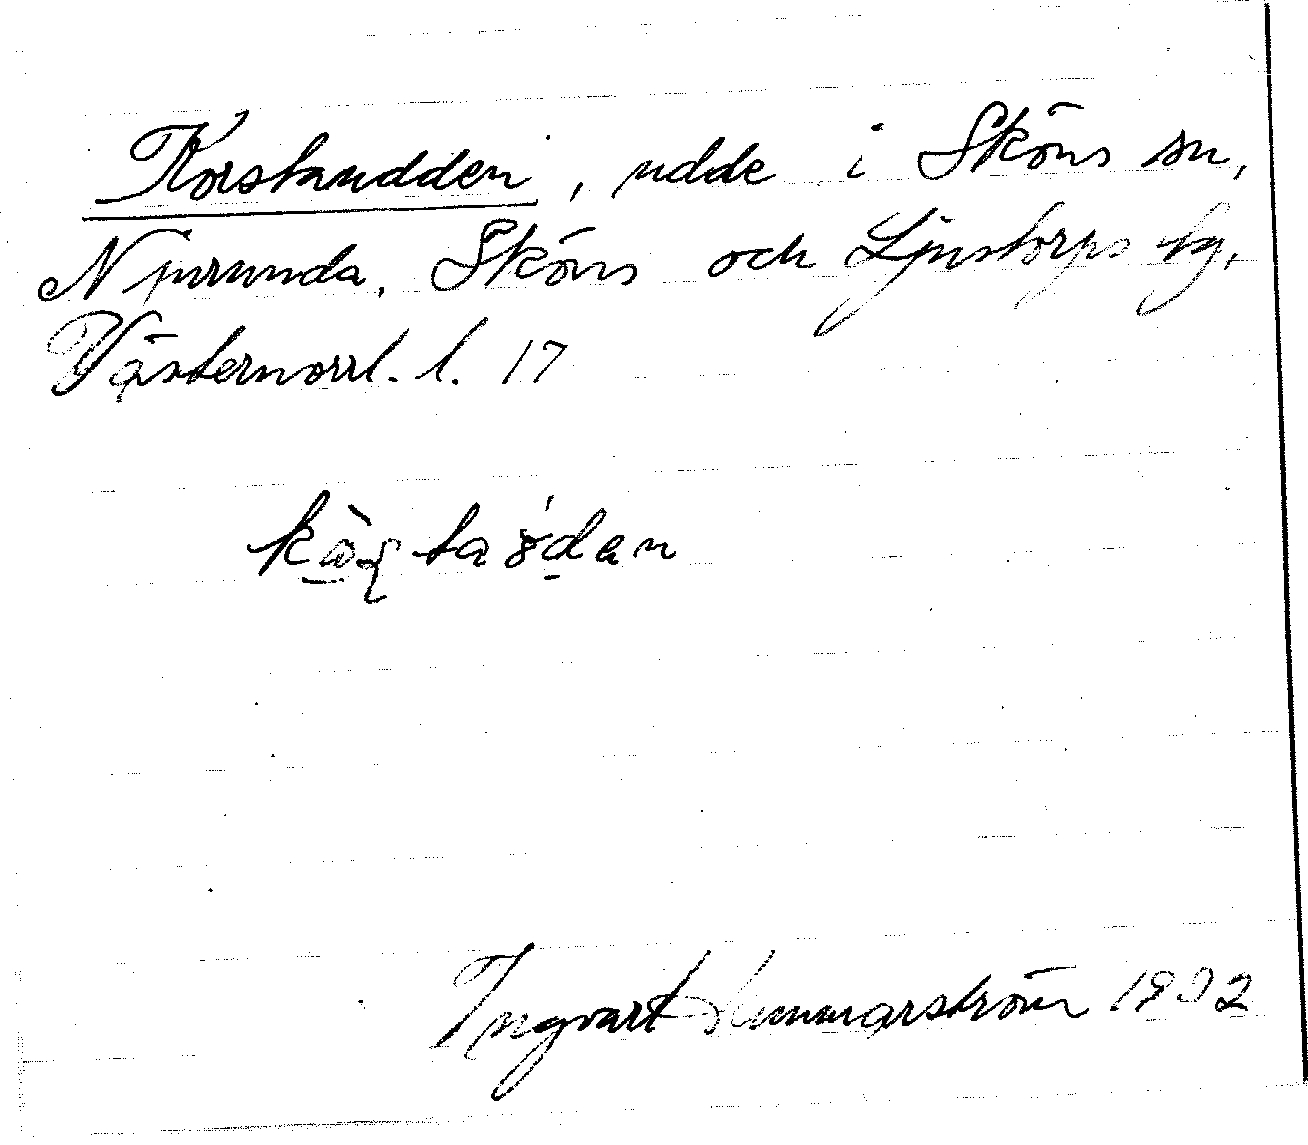 Korstaudden, udde i Sköns sn,
Njurunda, Sköns och Ljustorps tg,
Västernorrl. l. 17
Ingvart Hammarström 1932